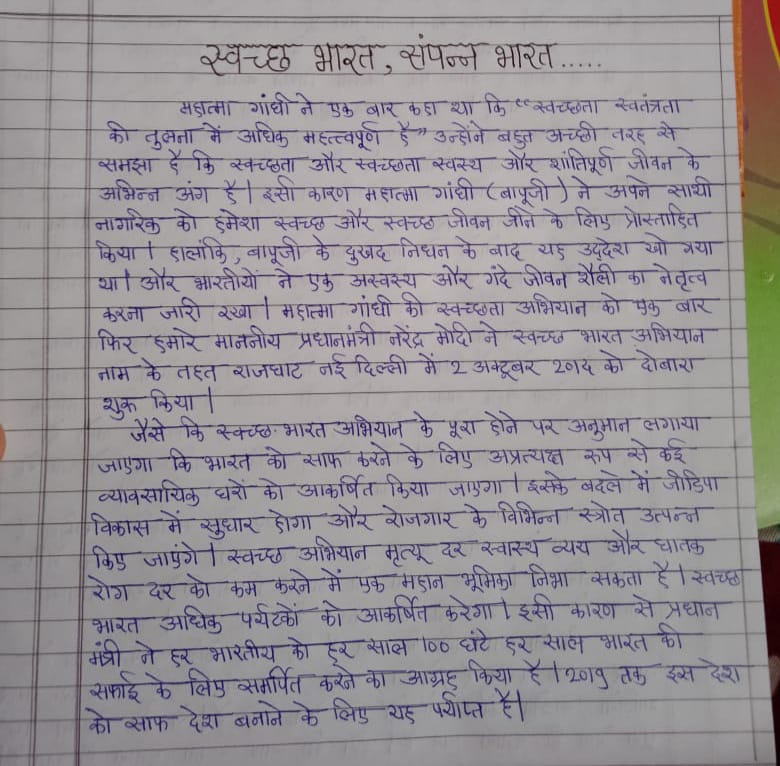 स्वच्छ भारत, संपन्न भारत.....
महात्मा गांधी ने एक बार कहा था कि "स्वच्छता स्वतंत्रता
की तुलना में अधिक महत्त्वपूर्ण है" उन्होंने बहुत अच्छी तरह से
समझा है कि स्वच्छता और स्वच्छता स्वस्थ और शांतिपूर्ण जीवन के
अभिन्न अंग है। इसी कारण महात्मा गांधी (बापूजी) ने अपने साथी
नागरिक को हमेशा स्वच्छ और स्वच्छ जीवन जीने के लिए प्रोस्ताहित
किया। हालांकि, बापूजी के दुखद निधन के बाद यह उद्देश खो गया
था। और भारतीयों ने एक अस्वस्थ और गंदे जीवन शैली का नेतृत्व
करना जारी रखा। महात्मा गांधी की स्वच्छता अभियान को एक बार
फिर हमारे माननीय प्रधानमंत्री नरेंद्र मोदी ने स्वच्छ भारत अभियान
नाम के तहत राजघाट नई दिल्ली में 2 अक्टूबर को दोबारा
शुरू किया।
जैसे कि स्वच्छ भारत अभियान के पूरा होने पर अनुमान लगाया
जाएगा कि भारत को साफ करने के लिए अप्रत्यक्ष रूप से कई
व्यावसायिक घरों को आकर्षित किया जाएगा। इसके बदले में जीडिपी
विकास में सुधार होगा और रोजगार के विभिन्न स्त्रोत उत्पन्न
किए जाएंगे। स्वच्छ अभियान मृत्यू दर स्वास्थ्य व्यय और घातक
रोग दर को कम करने में एक महान भूमिका निभा सकता है। स्वच्छ
भारत अधिक पर्यटकों को आकर्षित करेगा। इसी कारण से प्रधान
मंत्री ने हर भारतीय को हर साल 100 घंटे हर साल भारत की
सफाई के लिए समर्पित करने का आग्रह किया है। 2019 तक इस देश
को साफ देश बनाने के लिए यह पर्याप्त है।